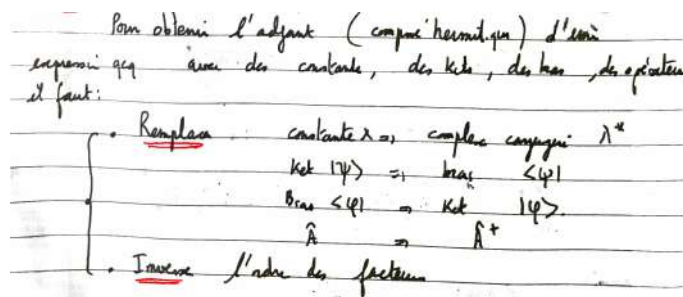 Pour obtenir l'adjoint (conjugué hermitique) d'une
expression qcq avec des constantes, des kets, des bras, des opérateurs
il faut :
• Remplacer constante λ ⇒ complexe conjugué λ*
Ket |ψ⟩ ⇒ bras ⟨ψ|
Bras ⟨φ| ⇒ Ket |φ⟩.
Â ⇒ Â⁺
• Inverser l'ordre des facteurs